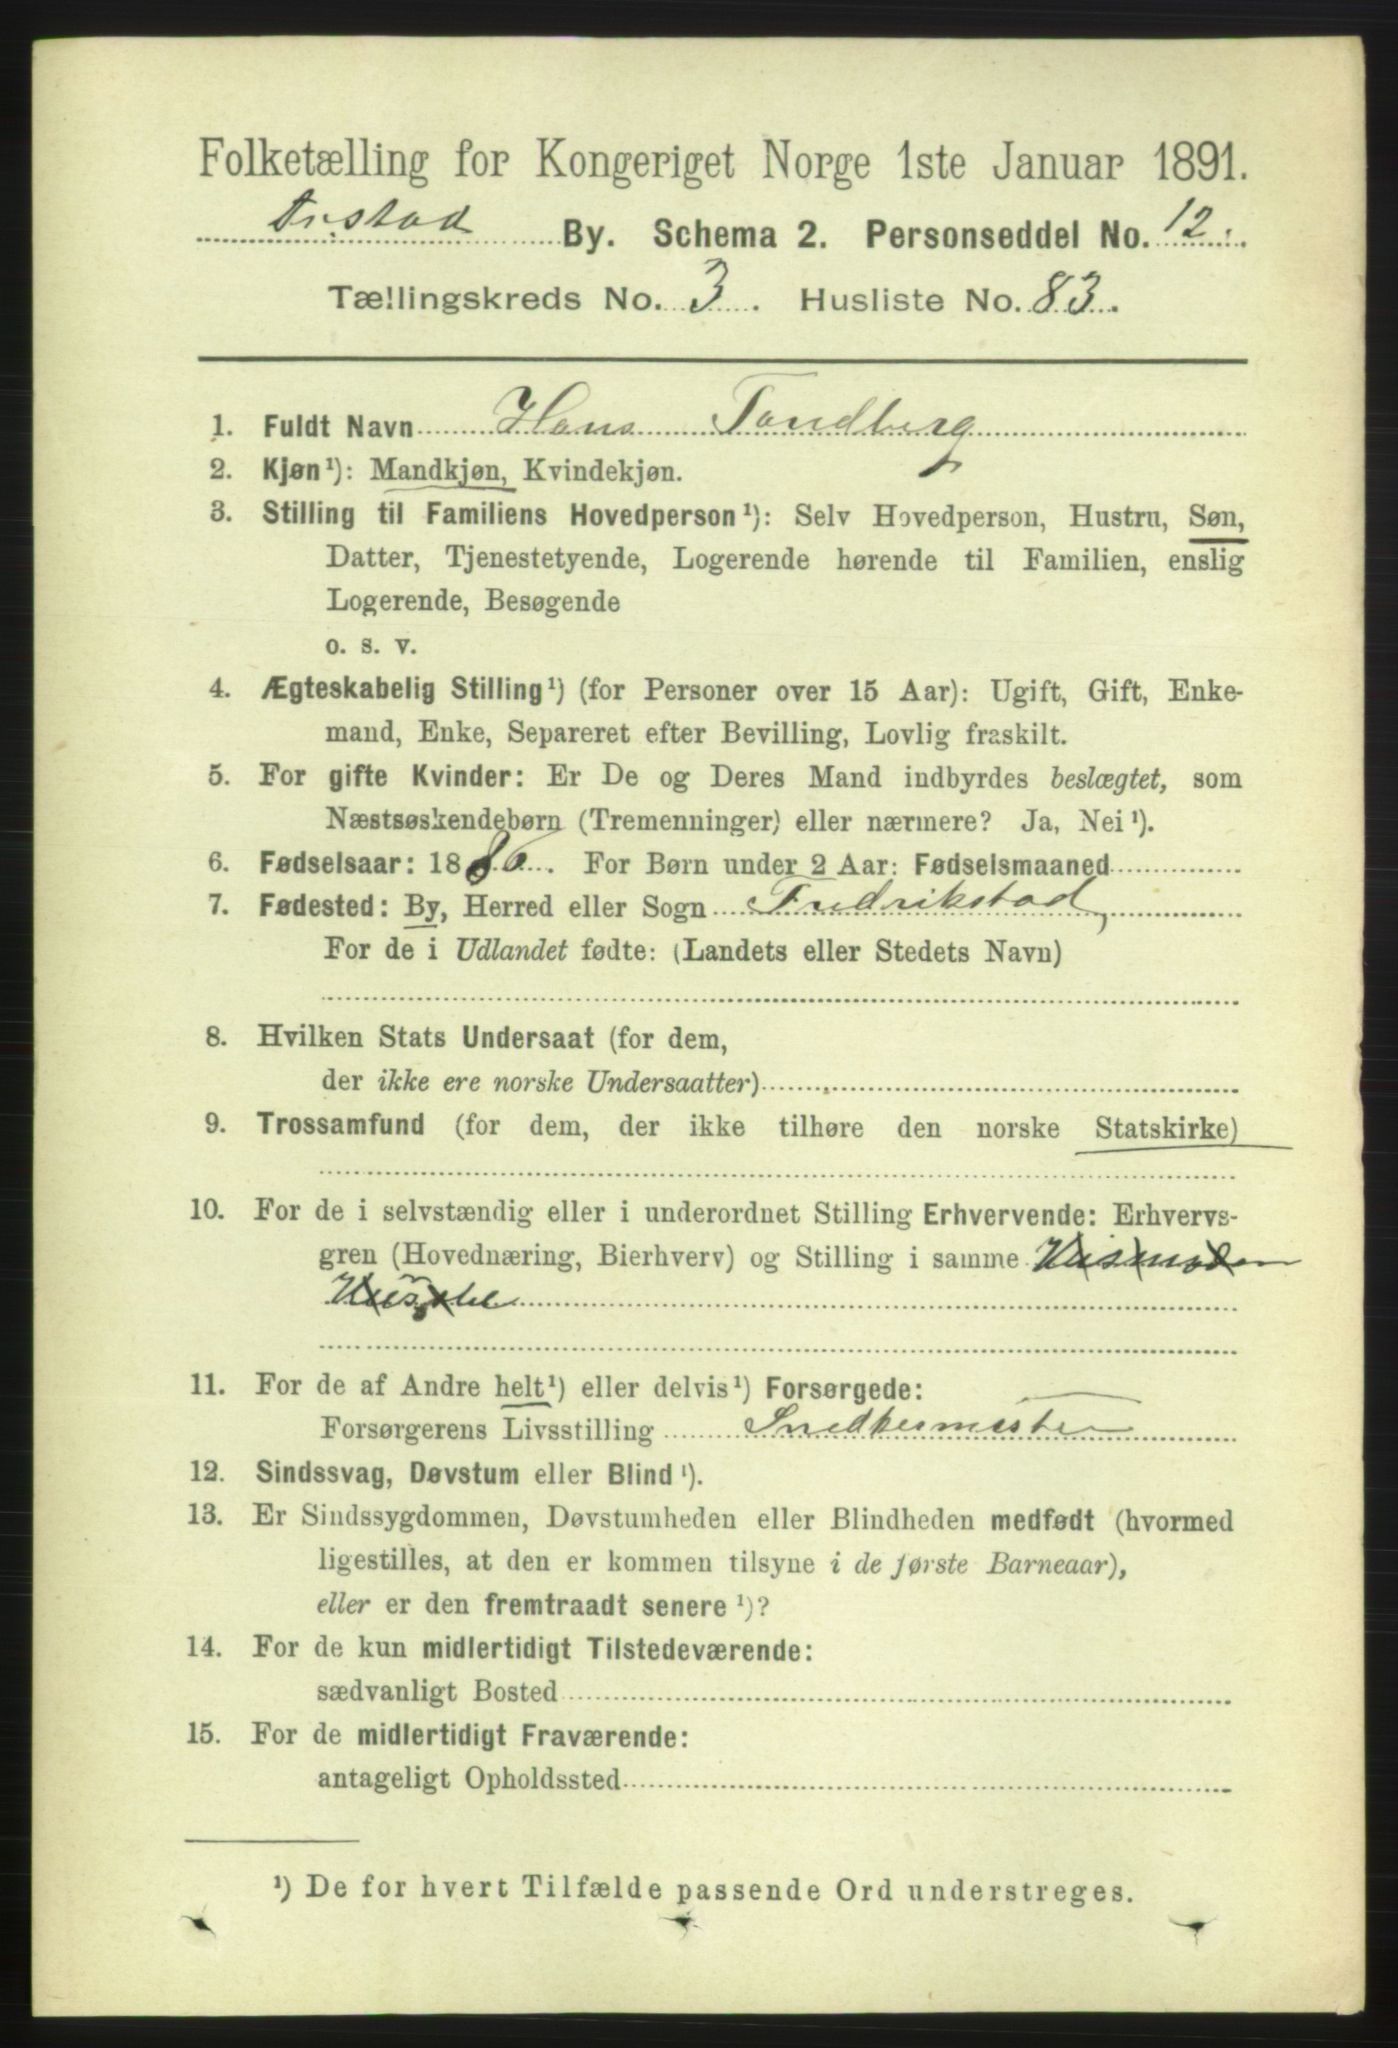 Folketælling for Kongeriget Norge 1ste Januar 1891.
Fr.stad By. Schema 2. Personseddel No. 12.
Tællingskreds No. 3. Husliste No. 83.
1. Fuldt Navn Hans Tandberg
2. Kjøn¹): Mandkjøn, Kvindekjøn.
3. Stilling til Familiens Hovedperson¹): Selv Hovedperson, Hustru, Søn,
Datter, Tjenestetyende, Logerende hørende til Familien, enslig
Logerende, Besøgende
o. s. v.
4. Ægteskabelig Stilling¹) (for Personer over 15 Aar): Ugift, Gift, Enke-
mand, Enke, Separeret efter Bevilling, Lovlig fraskilt.
5. For gifte Kvinder: Er De og Deres Mand indbyrdes beslægtet, som
Næstsøskendebørn (Tremenninger) eller nærmere? Ja, Nei¹).
6. Fødselsaar: 1886. For Børn under 2 Aar: Fødselsmaaned
7. Fødested: By, Herred eller Sogn Fredrikstad,
For de i Udlandet fødte: (Landets eller Stedets Navn)
8. Hvilken Stats Undersaat (for dem,
der ikke ere norske Undersaatter)
9. Trossamfund (for dem, der ikke tilhøre den norske Statskirke)
10. For de i selvstændig eller i underordnet Stilling Erhvervende: Erhvervs-
gren (Hovednæring, Bierhverv) og Stilling i samme
11. For de af Andre helt¹) eller delvis¹) Forsørgede:
Forsørgerens Livsstilling Snedkermester
12. Sindssvag, Døvstum eller Blind¹).
13. Er Sindssygdommen, Døvstumheden eller Blindheden medfødt (hvormed
ligestilles, at den er kommen tilsyne i de første Barneaar),
eller er den fremtraadt senere¹)?
14. For de kun midlertidigt Tilstedeværende:
sædvanligt Bosted
15. For de midlertidigt Fraværende:
antageligt Opholdssted
¹) De for hvert Tilfælde passende Ord understreges.